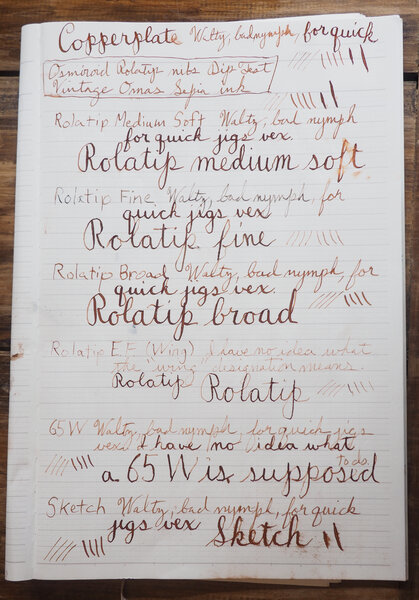 Copperplate Waltz, bad nymph, for quick
Osmiroid Rolatip nibs Dip Test
Vintage Omas Sepia ink
Rolatip Medium Soft Waltz, bad nymph
for quick jigs vex.
Rolatip medium soft
Rolatip Fine Waltz, bad nymph, for
quick jigs vex
Rolatip fine
Rolatip Broad Waltz, bad nymph, for
quick jigs vex.
Rolatip broad
Rolatip E.F. (Wing) I have no idea what
the "wing" designation means.
Rolatip Rolatip
65 W Waltz, bad nymph, for quick jigs
vex. I have no idea what
a 65 W is supposed to do.
Sketch Waltz, bad nymph, for quick
jigs vex Sketch